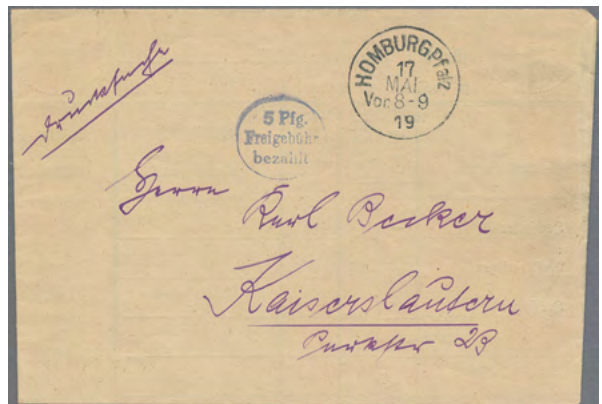 Drucksache
HOMBURG.Pfalz
17
MAI
Vor. 8-9
19
5 Pfg.
Freigebühr
bezahlt
Herrn
Karl Becker
Kaiserslautern
23